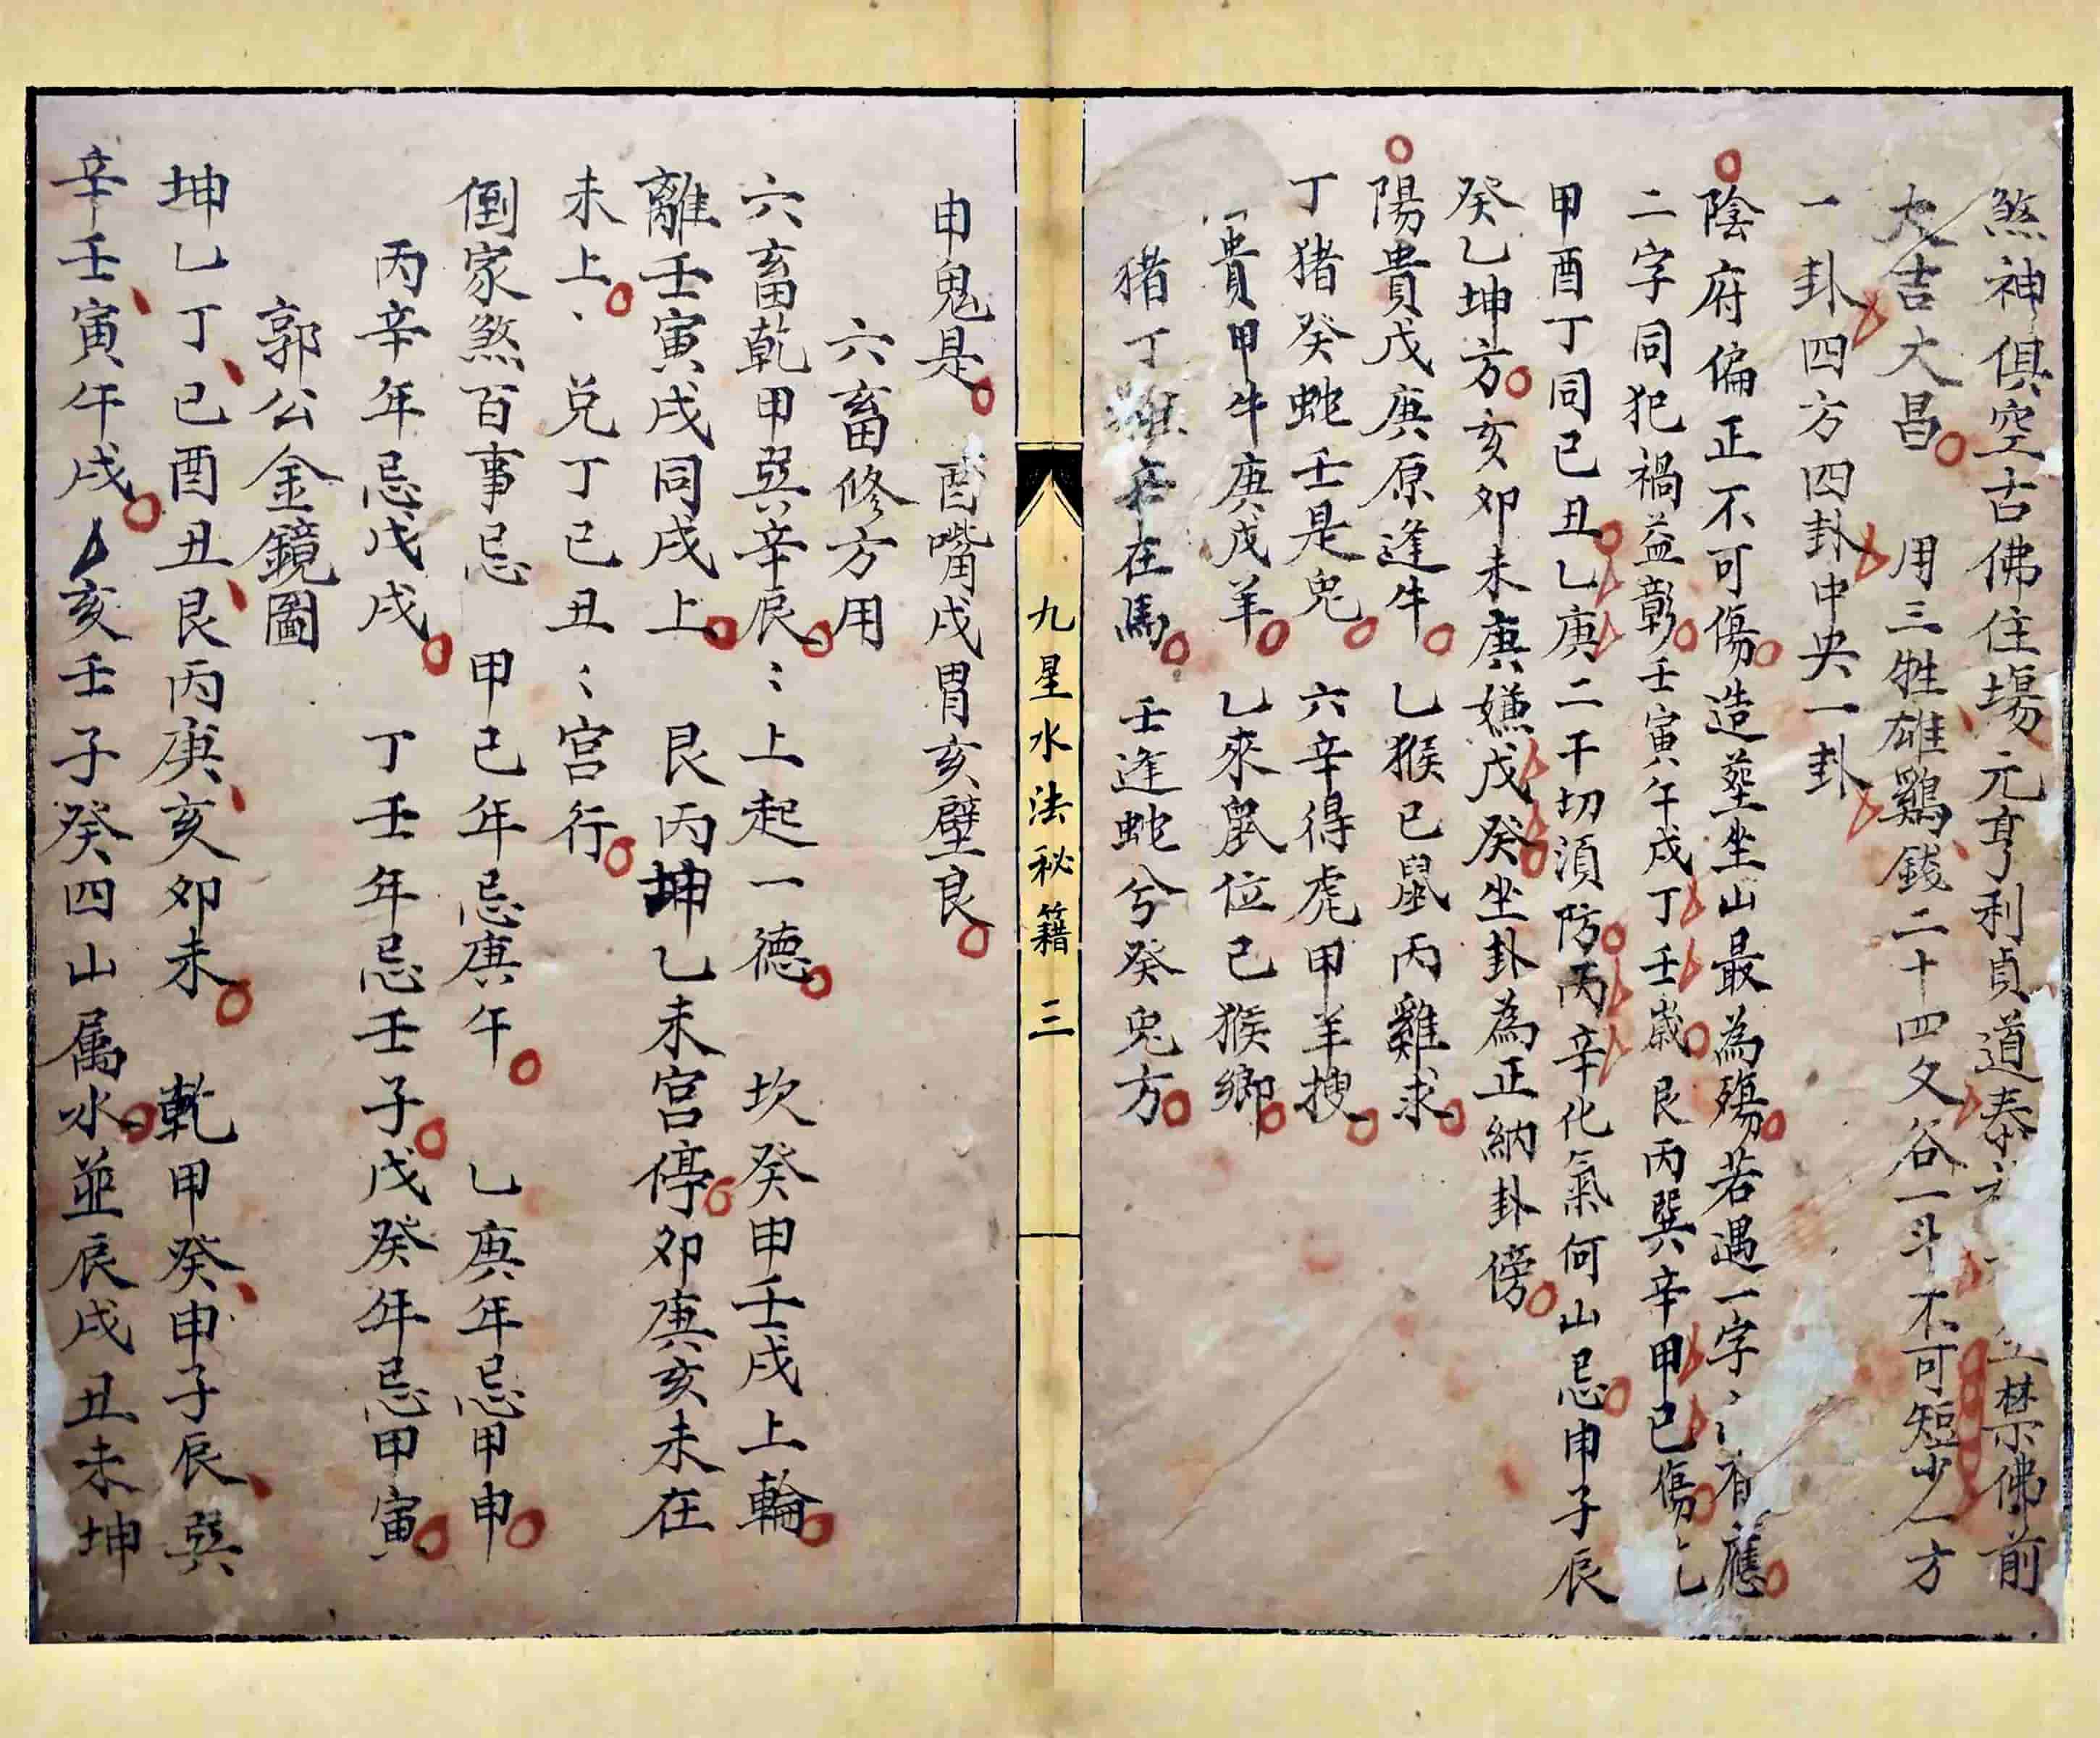 煞神俱空古佛住塲元亨利貞道泰禁佛前
大吉大昌　用三牲雄鷄錢二十四文谷一斗不可短少一方
一卦四方四卦中央一卦
陰府偏正不可傷造塟坐山最為殤若遇一字〻有應
二字同犯禍益彰壬寅午戌丁壬歲艮丙巽辛甲已傷
甲酉丁同已丑乙庚二干切須防丙辛化氣何山忌申子辰
癸乙坤方亥卯未庚嫌戊癸坐卦為正納卦傍
陽貴戊庚原逢牛　乙猴已鼠丙雞求
丁猪癸蛇壬是兔　六辛得虎甲羊搜
貴甲牛庚戊羊　乙來鼠位已猴鄉
猪丁辛在馬　壬逢蛇兮癸兔方
九星水法秘籍 三
申鬼是　酉嘴戌胃亥壁良
六畜修方用
六畜乾甲巽辛辰〻上起一德　坎癸申壬戌上輪
離壬寅戌同戌上　艮丙坤乙未宮停卯庚亥未在
未上、兑丁已丑〻宮行
倒家煞百事忌　甲已年忌庚午　乙庚年忌甲申
丙辛年忌戊戌　丁壬年忌壬子戊癸年忌甲寅
郭公金鏡圖
坤乙丁已酉丑艮丙庚亥卯未　乾甲癸申子辰巽
辛壬寅午戌亥壬子癸四山属水並辰戌丑未坤